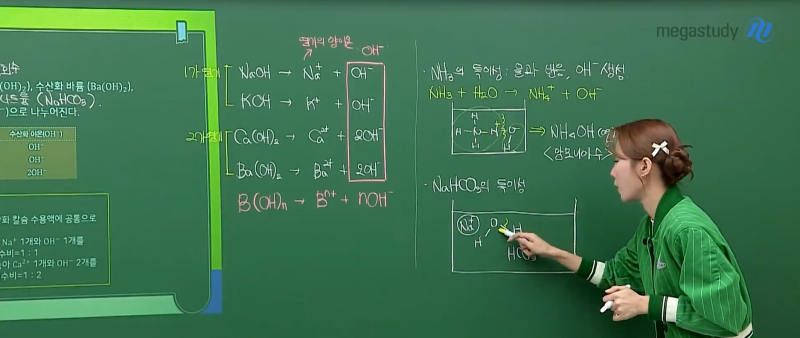 megastudy
(OH)₂), 수산화 바륨 (Ba(OH)₂),
(NaHCO₃).
⁻)으로 나누어진다.
수산화 이온(OH⁻)
OH⁻
OH⁻
2OH⁻
칼슘 수용액에 공통으로
Na⁺ 1개와 OH⁻ 1개를
수비=1 : 1
Ca²⁺ 1개와 OH⁻ 2개를
수비=1 : 2
염기의 양이온
OH⁻
1가 염기
NaOH → Na⁺ + OH⁻
KOH → K⁺ + OH⁻
2가 염기
Ca(OH)₂ → Ca²⁺ + 2OH⁻
Ba(OH)₂ → Ba²⁺ + 2OH⁻
B(OH)n → Bn+ + nOH⁻
· NH₃의 특이성 : 물과 반응, OH⁻ 생성
NH₃ + H₂O → NH₄⁺ + OH⁻
H
H N H O⁻
H
⇒ NH₄OH
<암모니아수>
· NaHCO₃의 특이성
Na⁺ O H
H HCO₃